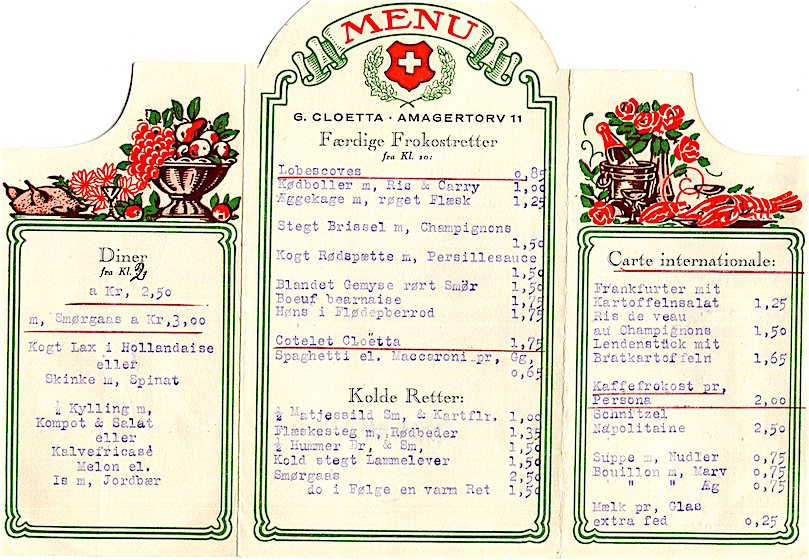 MENU
G. CLOETTA · AMAGERTORV 11
Færdige Frokostretter
fra Kl. 10:
Lobescoves 0,85
Kødboller m, Ris & Carry 1,00
Æggekage m, røget Flæsk 1,25
Stegt Brissel m, Champignons
1,50
Kogt Rødspætte m, Persillesauce
1,50
Blandet Gemyse rørt Smør 1,50
Boeuf bearnaise 1,75
Høns i Flødepberrod 1,75
Cotelet Cloëtta 1,75
Spaghetti el. Maccaroni pr, Gg,
0,65
Kolde Retter:
½ Matjessild Sm, & Kartflr. 1,00
Flæskesteg m, Rødbeder 1,35
½ Hummer Br, & Sm, 1,50
Kold stegt Lammelever 1,50
Smørgaas 2,50
do i Følge en varm Ret 1,50
Diner
fra Kl.
a Kr, 2,50
m, Smørgaas a Kr,3,00
Kogt Lax i Hollandaise
eller
Skinke m, Spinat
½ Kylling m,
Kompot & Salat
eller
Kalvefricasé
Melon el.
Is m, Jordbær
Carte internationale:
Frankfurter mit
Kartoffelnsalat 1,25
Ris de veau
au Champignons 1,50
Lendenstück mit
Bratkartoffeln 1,65
Kaffefrokost pr,
Persona 2,00
Schnitzel
Napolitaine 2,50
Suppe m, Nudler 0,75
Bouillon m, Marv 0,75
" " Æg 0,75
Mælk pr, Glas
extra fed 0,25